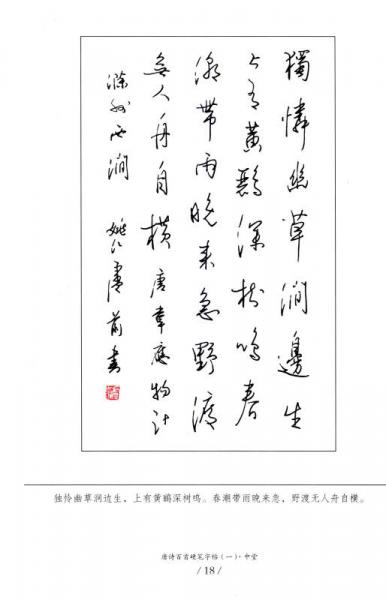 獨憐幽草澗邊生
上有黃鸝深樹鳴春
潮帶雨晚來急野渡
無人舟自橫唐韋應物詩
滁州西澗 姚江盧前書
独怜幽草涧边生，上有黄鹂深树鸣。春潮带雨晚来急，野渡无人舟自横。
唐诗百首硬笔字帖(一)·中堂
/ 18 /